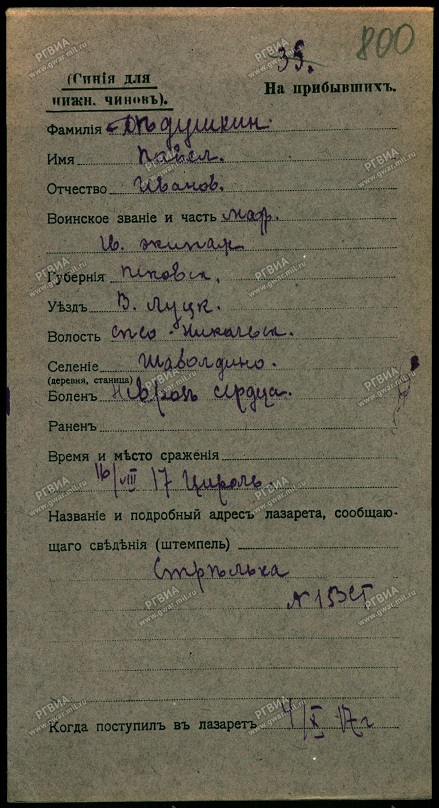 800
35.
(Синія для
нижн. чиновъ).
На прибывшихъ.
Фамилія Дѣдушкин.
Имя Павел.
Отчество Иванов.
Воинское званіе и часть мат.
экипаж
Губернія Псковск.
Уѣздъ В. Луцк.
Волость Спасо-Никольск.
Селеніе Шаволдино.
(деревня, станица)
Боленъ Невроз сердца.
Раненъ
Время и мѣсто сраженія
16/VIII 17 Цирель.
Названіе и подробный адресъ лазарета, сообщаю-
щаго свѣдѣнія (штемпель)
Стрѣлька
Когда поступилъ въ лазаретъ 4/X 17 г
РГВИА
www.gwar.mil.ru